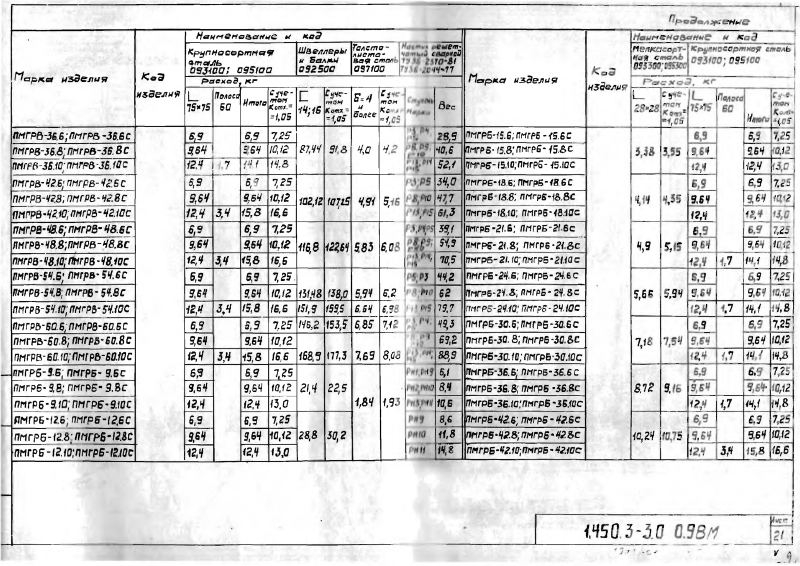 Продолжение
Наименование и код
Марка изделия
Код изделия
Крупносортная сталь 093100; 095100
Швеллеры и балки 092500
Толсто-листовая сталь 097100
Расход, кг
L 75×75 Полоса 60 Итого С учетом Котх.=1,05 [ 14;16 С учетом Котх.=1,05 Б=4 и более С учетом Котх.=1,05 Марка Вес
ПМГРВ-36.6; ПМГРВ-36.6С 6,9 6,9 7,25 28,9
ПМГРВ-36.8; ПМГРВ-36.8С 9,64 9,64 10,12 87,44 91,8 4,0 4,2 40,6
ПМГРВ-36.10; ПМГРВ-36.10С 12,4 1,7 14,1 14,8 52,1
ПМГРВ-42.6; ПМГРВ-42.6С 6,9 6,9 7,25 Р3,Р5 34,0
ПМГРВ-42.8; ПМГРВ-42.8С 9,64 9,64 10,12 102,12 107,25 4,91 5,16 Р8,Р10 47,7
ПМГРВ-42.10; ПМГРВ-42.10С 12,4 3,4 15,8 16,6 61,3
ПМГРВ-48.6; ПМГРВ-48.6С 6,9 6,9 7,25 39,1
ПМГРВ-48.8; ПМГРВ-48.8С 9,64 9,64 10,12 116,8 122,64 5,83 6,08 54,9
ПМГРВ-48.10; ПМГРВ-48.10С 12,4 3,4 15,8 16,6 70,5
ПМГРВ-54.6; ПМГРВ-54.6С 6,9 6,9 7,25 44,2
ПМГРВ-54.8; ПМГРВ-54.8С 9,64 9,64 10,12 131,48 138,0 5,94 6,2 62
ПМГРВ-54.10; ПМГРВ-54.10С 12,4 3,4 15,8 16,6 151,9 159,5 6,64 6,98 79,7
ПМГРВ-60.6; ПМГРВ-60.6С 6,9 6,9 7,25 146,2 153,5 6,85 7,12 49,3
ПМГРВ-60.8; ПМГРВ-60.8С 9,64 9,64 10,12 69,2
ПМГРВ-60.10; ПМГРВ-60.10С 12,4 3,4 15,8 16,6 168,9 177,3 7,69 8,08 88,9
ПМГРБ-9.6; ПМГРБ-9.6С 6,9 6,9 7,25 6,1
ПМГРБ-9.8; ПМГРБ-9.8С 9,64 9,64 10,12 21,4 22,5 8,4
ПМГРБ-9.10; ПМГРБ-9.10С 12,4 12,4 13,0 1,84 1,93 10,6
ПМГРБ-12.6; ПМГРБ-12.6С 6,9 6,9 7,25 РН9 8,6
ПМГРБ-12.8; ПМГРБ-12.8С 9,64 9,64 10,12 28,8 30,2 РН10 11,8
ПМГРБ-12.10; ПМГРБ-12.10С 12,4 12,4 13,0 РН11 14,8
Наименование и код
Марка изделия
Код изделия
Мелкосорт-ная сталь 093300; 095300
Крупносортная сталь 093100; 095100
Расход, кг
L 28×28 С учетом Котх.=1,05 L 75×75 Полоса 60 Итого С учетом Котх.=1,05
ПМГРБ-15.6; ПМГРБ-15.6С 6,9 6,9 7,25
ПМГРБ-15.8; ПМГРБ-15.8С 3,38 3,55 9,64 9,64 10,12
ПМГРБ-15.10; ПМГРБ-15.10С 12,4 12,4 13,0
ПМГРБ-18.6; ПМГРБ-18.6С 6,9 6,9 7,25
ПМГРБ-18.8; ПМГРБ-18.8С 4,14 4,35 9,64 9,64 10,12
ПМГРБ-18.10; ПМГРБ-18.10С 12,4 12,4 13,0
ПМГРБ-21.6; ПМГРБ-21.6С 6,9 6,9 7,25
ПМГРБ-21.8; ПМГРБ-21.8С 4,9 5,15 9,64 9,64 10,12
ПМГРБ-21.10; ПМГРБ-21.10С 12,4 1,7 14,1 14,8
ПМГРБ-24.6; ПМГРБ-24.6С 6,9 6,9 7,25
ПМГРБ-24.8; ПМГРБ-24.8С 5,66 5,94 9,64 9,64 10,12
ПМГРБ-24.10; ПМГРБ-24.10С 12,4 1,7 14,1 14,8
ПМГРБ-30.6; ПМГРБ-30.6С 6,9 6,9 7,25
ПМГРБ-30.8; ПМГРБ-30.8С 7,18 7,54 9,64 9,64 10,12
ПМГРБ-30.10; ПМГРБ-30.10С 12,4 1,7 14,1 14,8
ПМГРБ-36.6; ПМГРБ-36.6С 6,9 6,9 7,25
ПМГРБ-36.8; ПМГРБ-36.8С 8,72 9,16 9,64 9,64 10,12
ПМГРБ-36.10; ПМГРБ-36.10С 12,4 1,7 14,1 14,8
ПМГРБ-42.6; ПМГРБ-42.6С 6,9 6,9 7,25
ПМГРБ-42.8; ПМГРБ-42.8С 10,24 10,75 9,64 9,64 10,12
ПМГРБ-42.10; ПМГРБ-42.10С 12,4 3,4 15,8 16,6
1.450.3-3.0 0.9ВМ
Лист
21